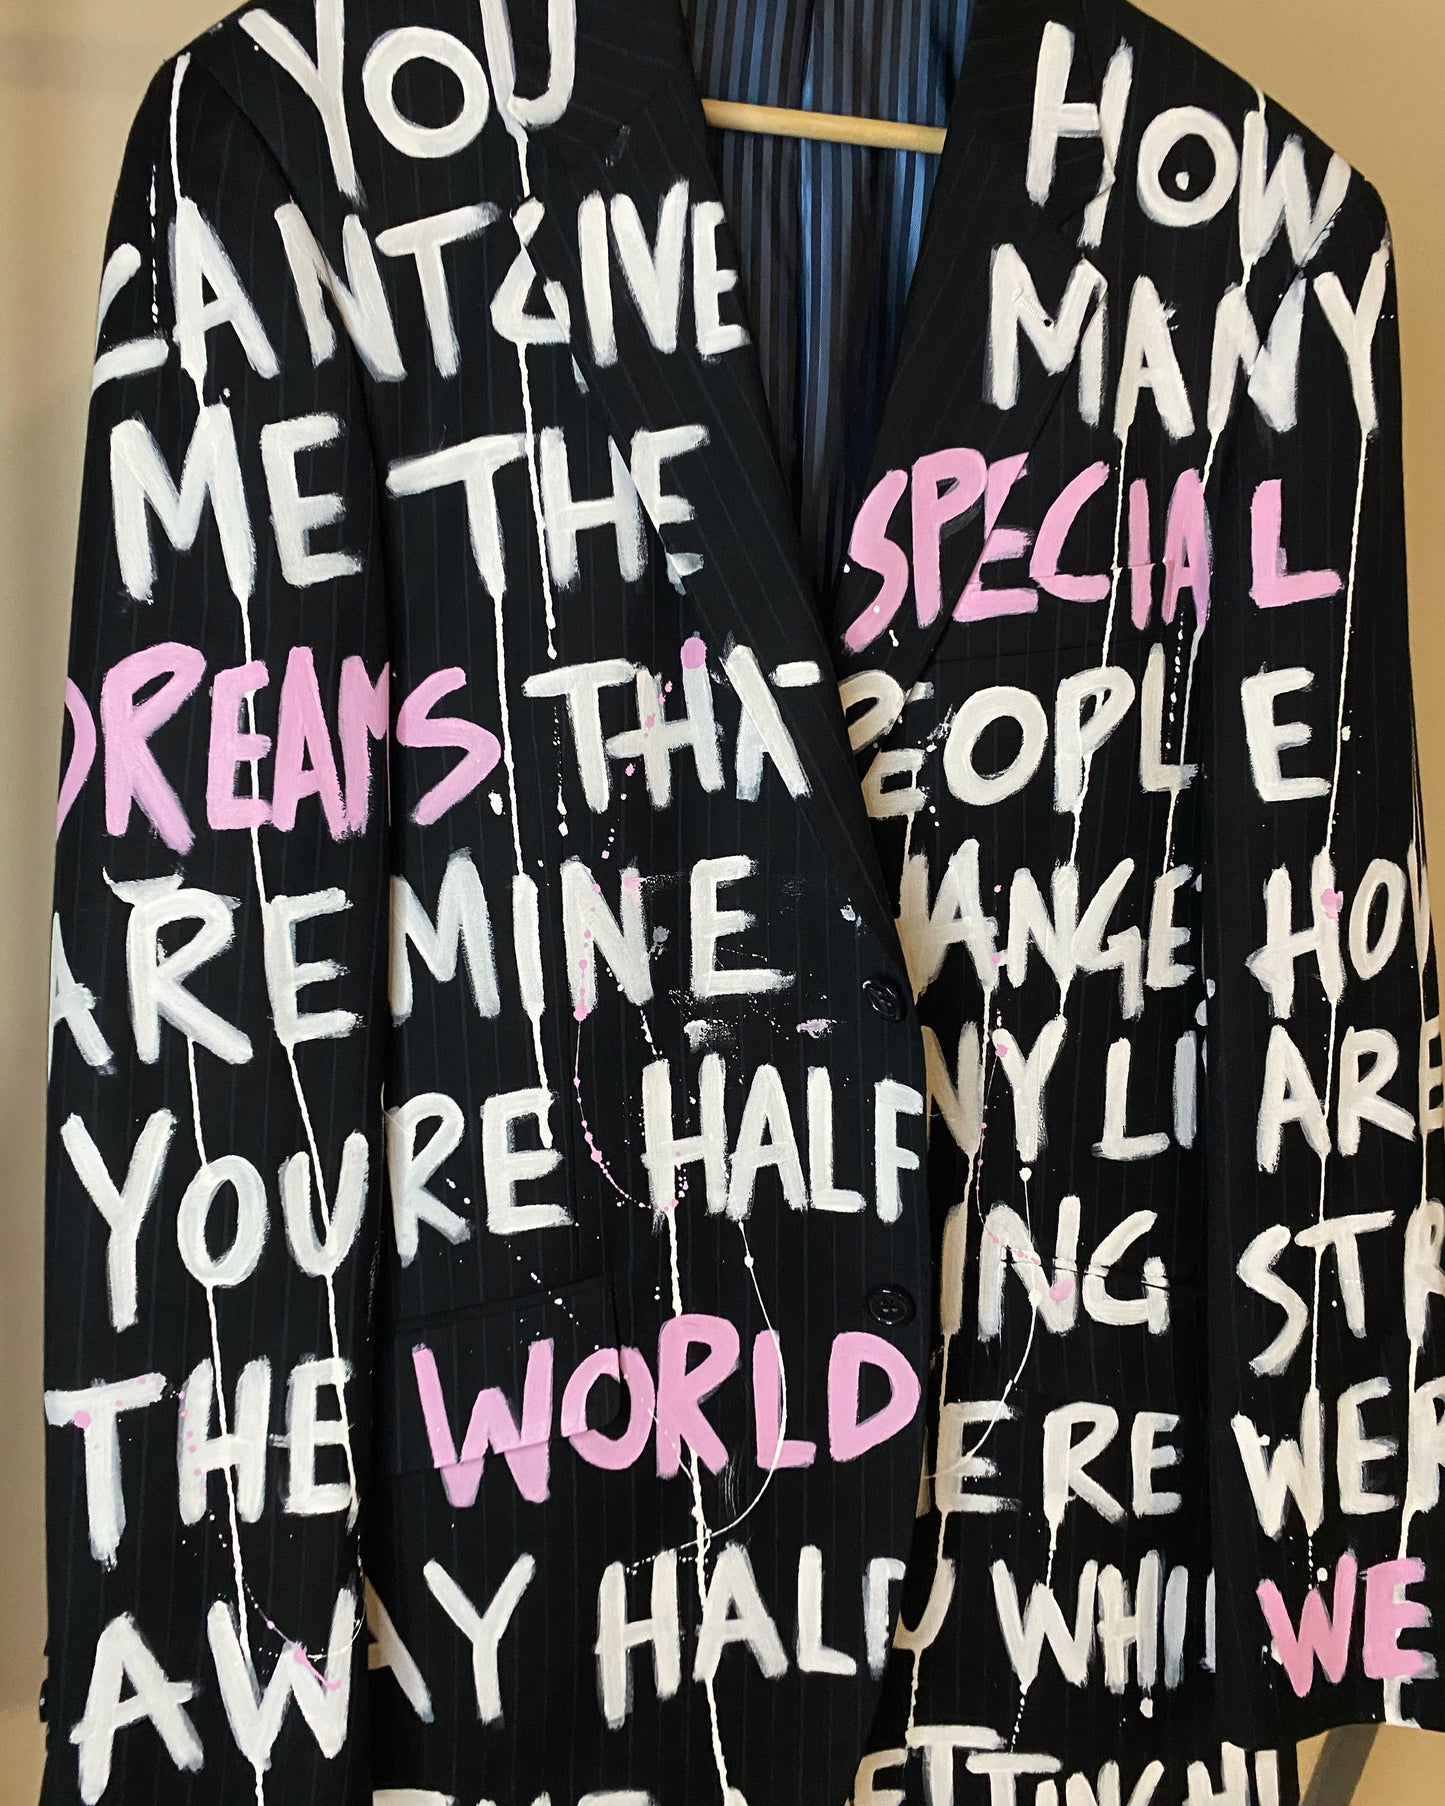 YOU
CANT GIVE
ME THE
DREAMS THAT
ARE MINE
YOURE HALF
THE WORLD
AWAY HALF
HOW
MANY
SPECIAL
PEOPLE
HANGE HOW
NY LI ARE
ING STR
ERE WER
U WHI WE
ETTING HI